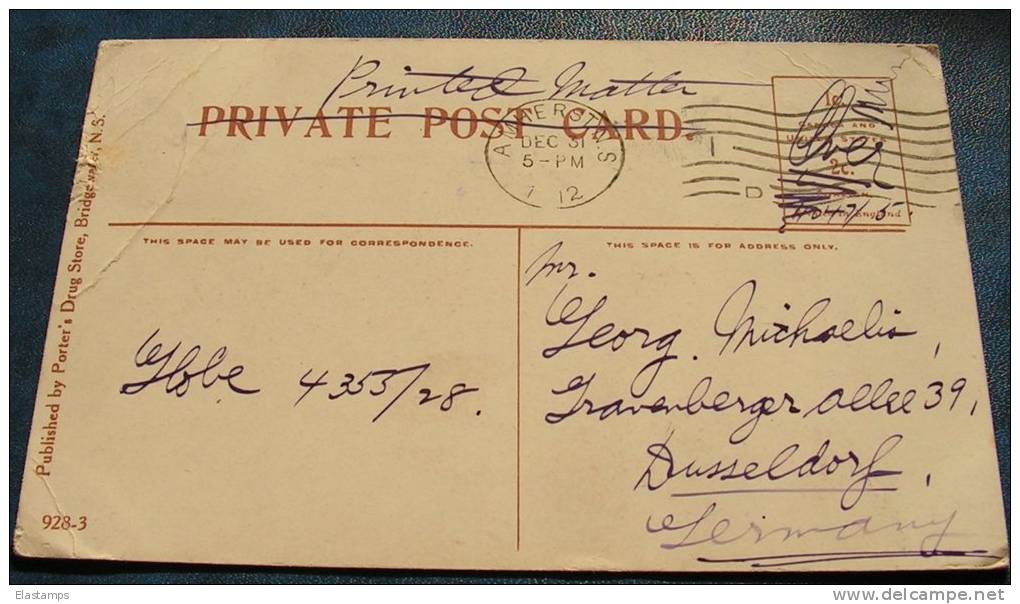 Printed Matter
PRIVATE POST CARD.
AMHERST N.S
DEC 31
5-PM
12
D
1c.
2c.
Over
England
THIS SPACE MAY BE USED FOR CORRESPONDENCE.
THIS SPACE IS FOR ADDRESS ONLY.
Globe 4353/28.
Mr.
Georg. Michaelis,
Gravenberger allee 39,
Dusseldorf,
Germany
Published by Porter's Drug Store, Bridgewater, N.S.
928-3
Elastamps
delcampe.net